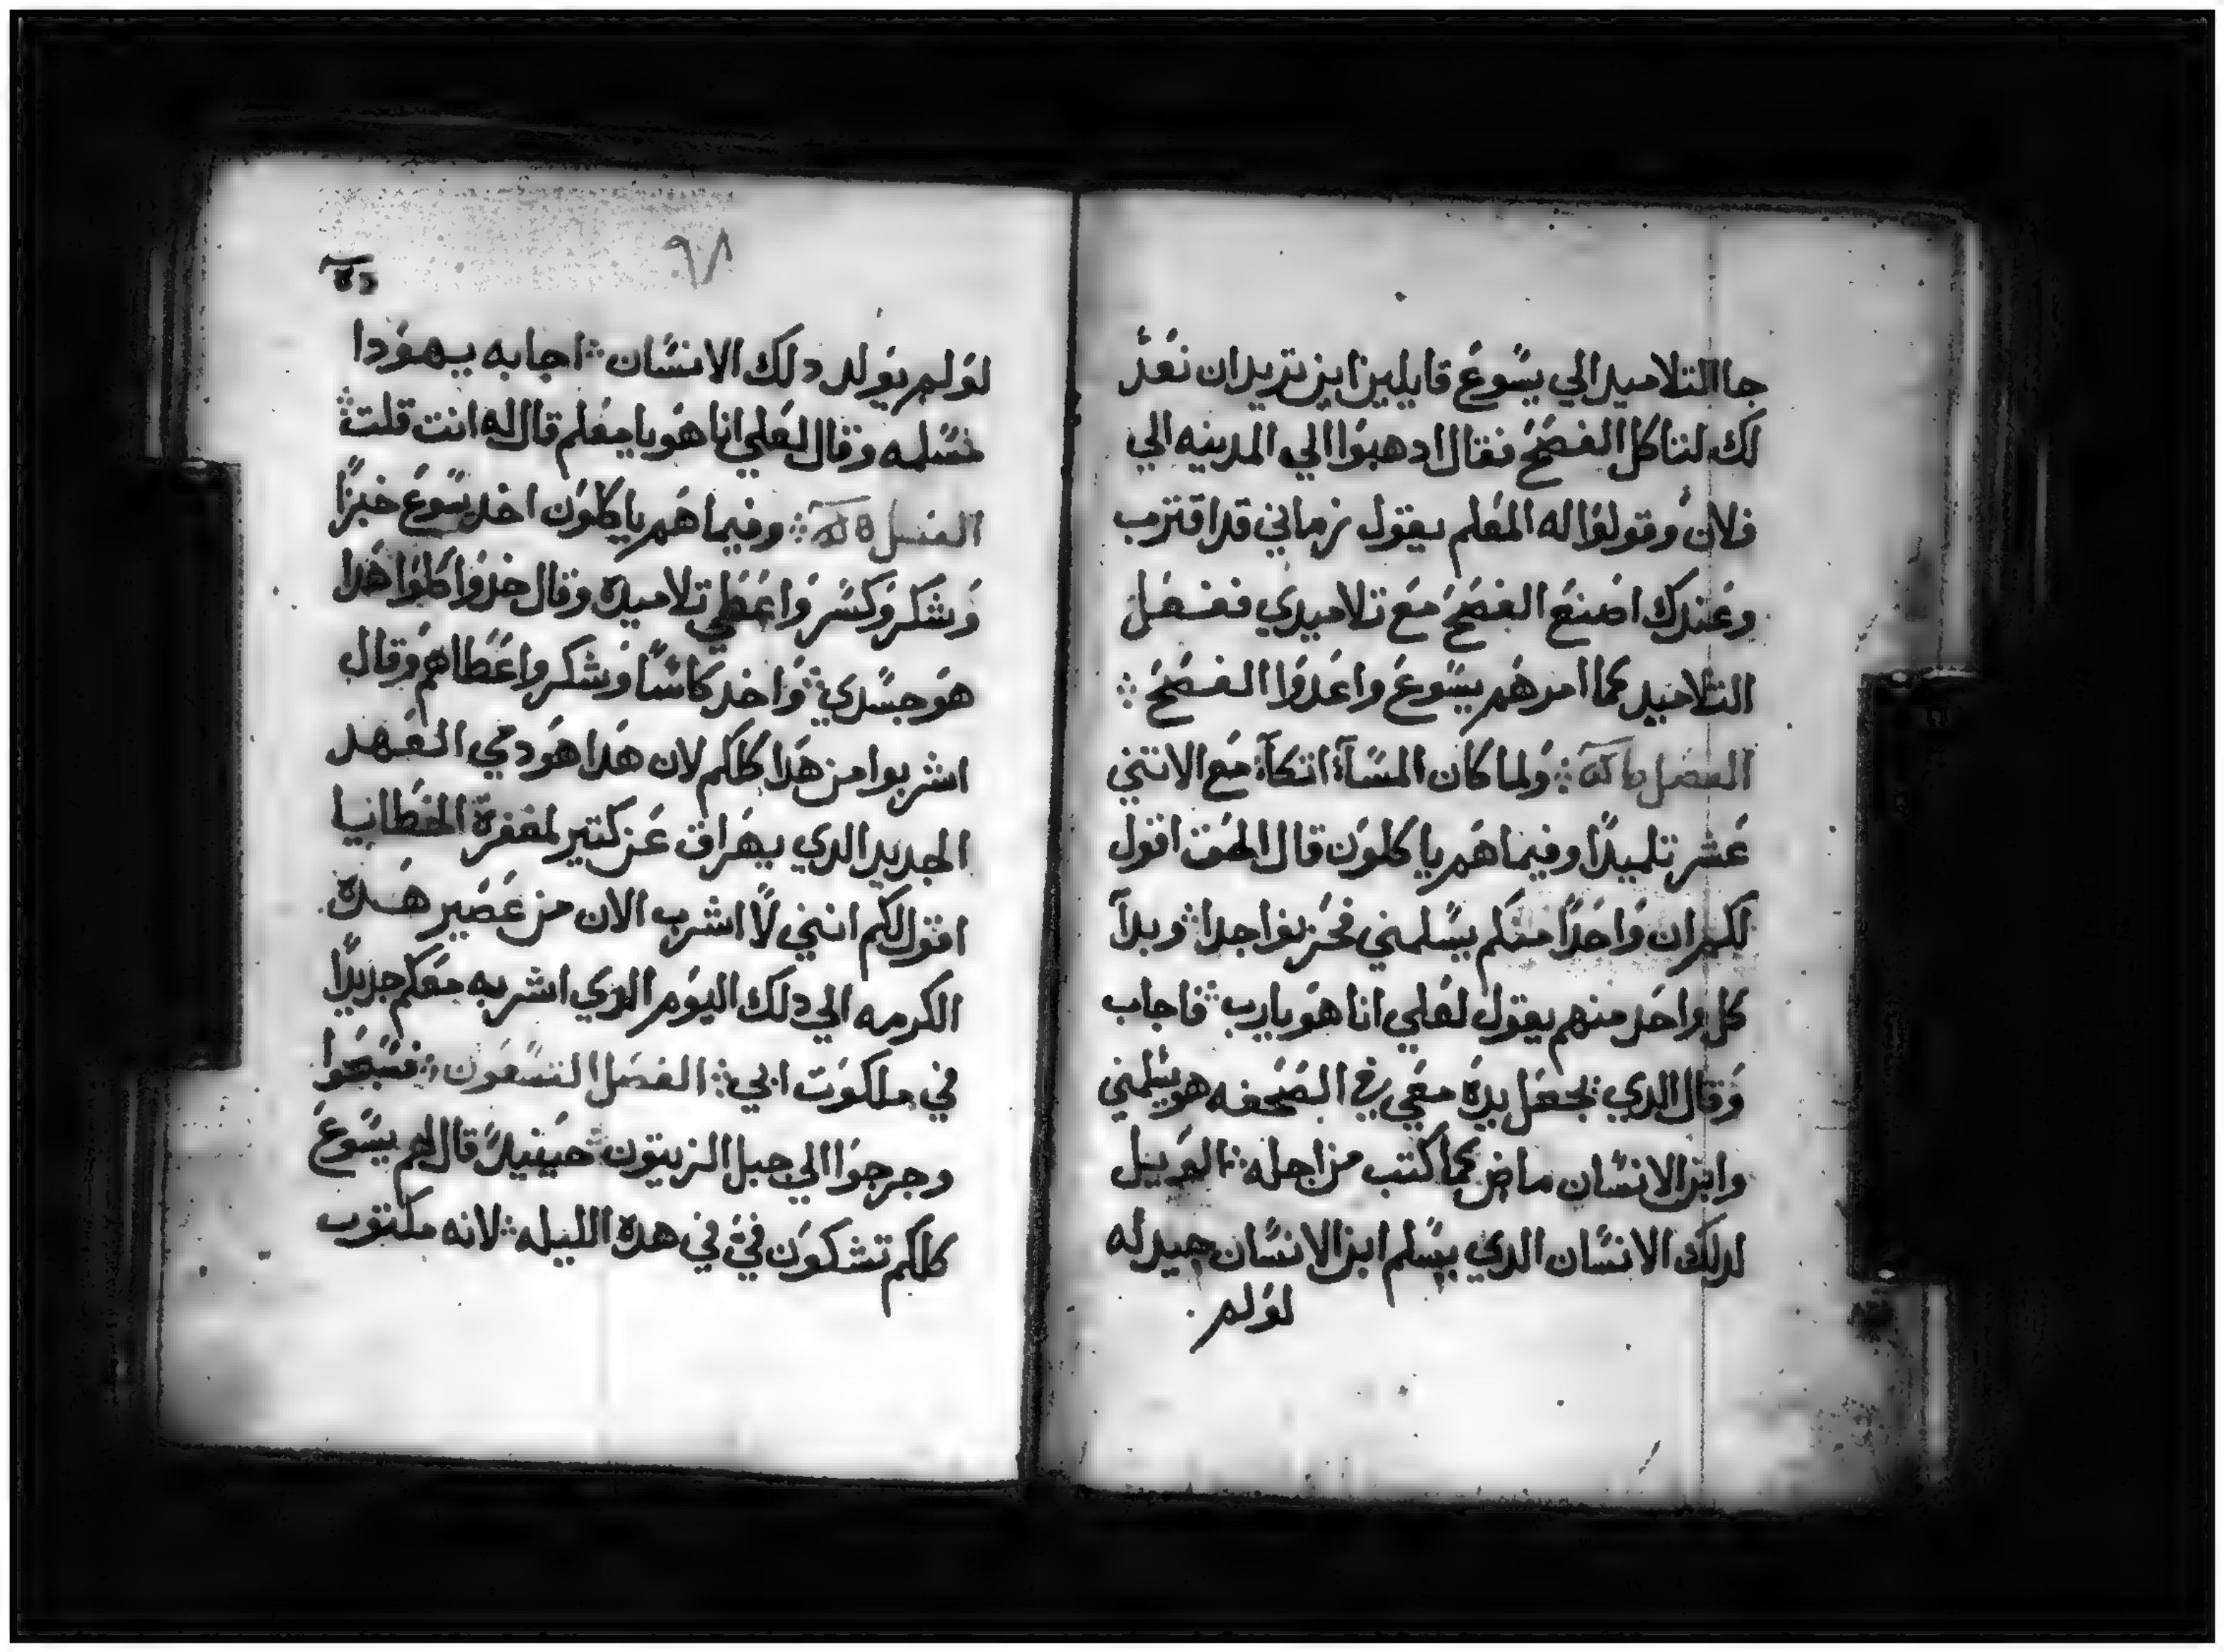 جا التلاميد الي يسوع قايلين اين تريد ان نعد
لك لناكل الفصح فقال ادهبوا الي المدينه الي
فلان وقولوا له المعلم يقول زماني قد اقترب
وعندك اصنع الفصح مع تلاميدي ففعل
التلاميد كما امرهم يسوع واعدوا الفصح ܀
الفصل ܀ ولما كان المسآ اتكآ مع الاتني
عشر تلميدًا وفيما هم ياكلون قال الحق اقول
لكم ان واحدًا منكم يسلمني فحزنوا جدا ܀ وبدآ
كل واحد منهم يقول لعلي انا هو يارب ܀ فاجاب
وقال الدي يجعل يده معي في الصحفه هو يسلمني
وابن الانسان ماض كما كتب من اجله ܀ الويل
لدلك الانسان الدي يسلم ابن الانسان جيد له
لو لم
٩٨
لو لم يولد دلك الانسان ܀ اجابه يهودا
مسلمه وقال لعلي انا هو يا معلم قال له انت قلت ܀
الفصل ܀ وفيما هم ياكلون اخد يسوع خبزًا
وشكر وكسر واعطي تلاميده وقال خدوا كلوا هدا
هو جسدي ܀ واخد كاسًا وشكر واعطاهم وقال
اشربوا من هدا كلكم لان هدا هو دمي العهد
الجديد الدي يهراق عن كتير لمغفرة الخطايا
اقول لكم انني لا اشرب الان من عصير هده
الكرمه الي دلك اليوم الدي اشربه معكم جديدًا
في ملكوت ابي ܀ الفصل التسعون ܀ فسبحوا
وخرجوا الي جبل الزيتون ܀ حينيدً قال لهم يسوع
كلكم تشكون في في هده الليله ܀ لانه مكتوب